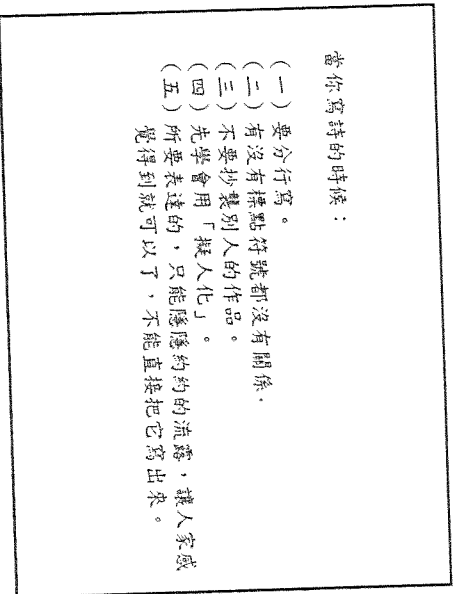 當你寫詩的時候：
（一）要分行寫。
（二）有沒有標點符號都沒有關係．
（三）不要抄襲別人的作品。
（四）先學會用「擬人化」。
（五）所要表達的，只能隱隱約約的流露，讓人家感
覺得到就可以了，不能直接把它寫出來。